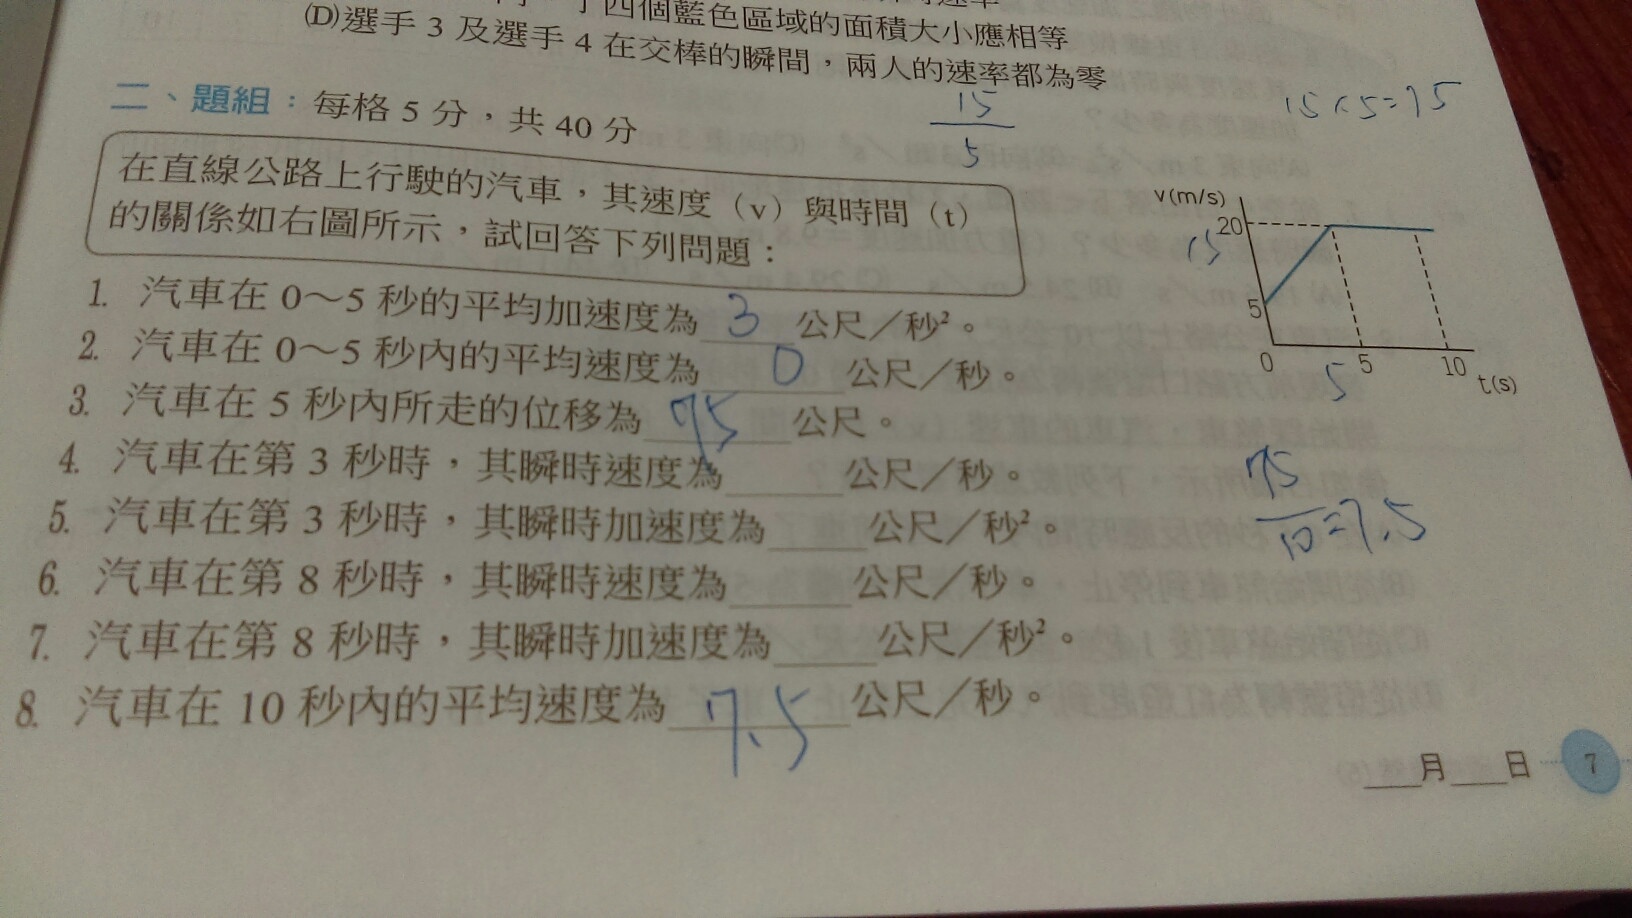 四個藍色區域的面積大小應相等
(D)選手 3 及選手 4 在交棒的瞬間，兩人的速率都為零
二、題組：每格 5 分，共 40 分
15
5
15×5=75
在直線公路上行駛的汽車，其速度（v）與時間（t）
的關係如右圖所示，試回答下列問題：
v(m/s)
20
15
5
0
5
10
t(s)
5
1. 汽車在 0～5 秒的平均加速度為 3 公尺／秒²。
2. 汽車在 0～5 秒內的平均速度為 0 公尺／秒。
3. 汽車在 5 秒內所走的位移為 75 公尺。
4. 汽車在第 3 秒時，其瞬時速度為____公尺／秒。
5. 汽車在第 3 秒時，其瞬時加速度為____公尺／秒²。
6. 汽車在第 8 秒時，其瞬時速度為____公尺／秒。
7. 汽車在第 8 秒時，其瞬時加速度為____公尺／秒²。
8. 汽車在 10 秒內的平均速度為 7.5 公尺／秒。
75
10=7.5
___月___日
7